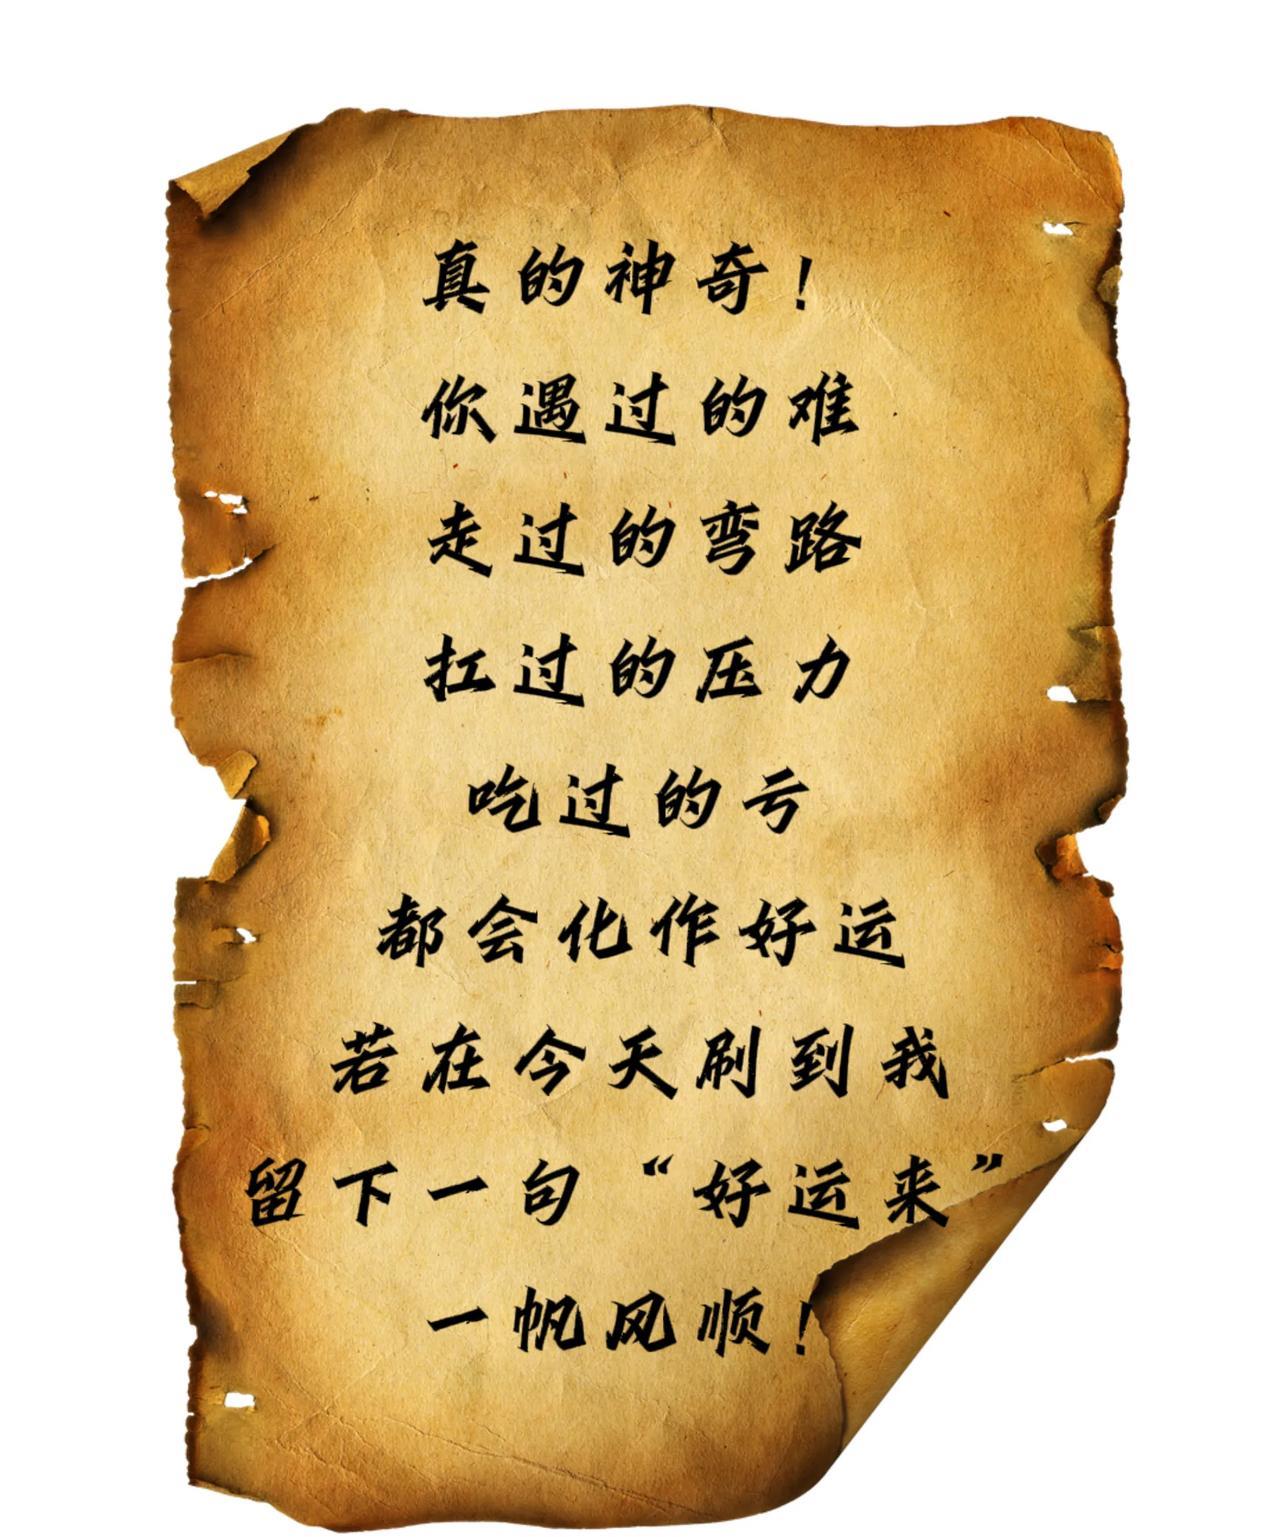 真的神奇！
你遇过的难
走过的弯路
扛过的压力
吃过的亏
都会化作好运
若在今天刷到我
留下一句“好运来”
一帆风顺！